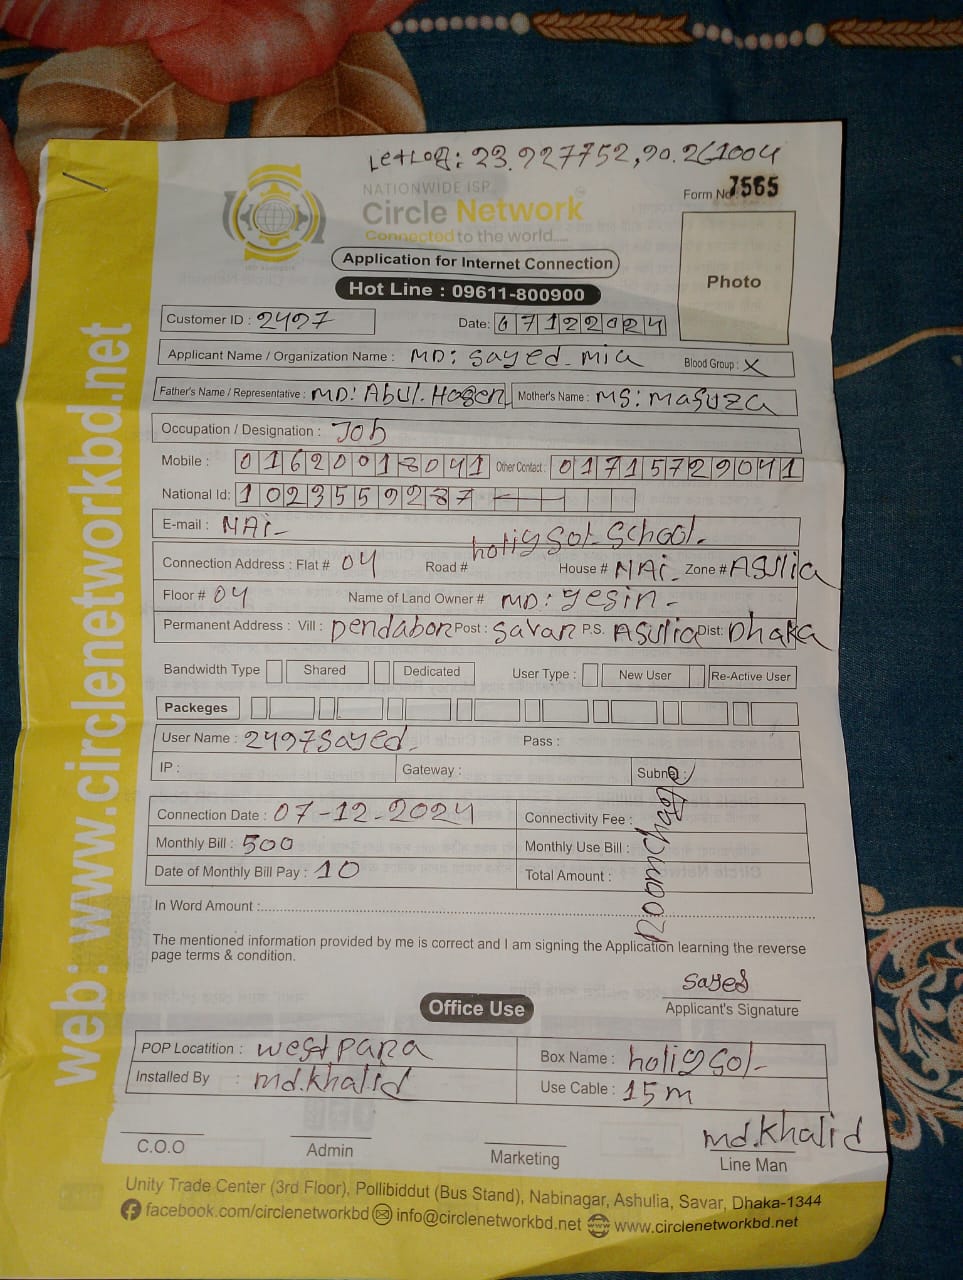 Let Log: 23.927752,90.261004
NATIONWIDE ISP
Circle Network
Connected to the world.....
Form No 7565
Photo
Application for Internet Connection
Hot Line : 09611-800900
Customer ID : 2497
Date: 07122024
Applicant Name / Organization Name : MD: Sayed Mia Blood Group : X
Father's Name / Representative : MD: Abul. Hosen Mother's Name : MS: Masuza
Occupation / Designation : Job
Mobile : 01620018041 Other Contact : 01715729041
National Id: 1023559287
E-mail : NAi
Connection Address : Flat # 04 Road # holigsol school. House # NAi Zone # ASulia
Floor # 04 Name of Land Owner # MD: yesin
Permanent Address : Vill : Dendabor Post : Savar P.S. ASulia Dist: Dhaka
Bandwidth Type Shared Dedicated User Type : New User Re-Active User
Packeges
User Name : 2497sayed Pass :
IP : Gateway : Subne
Connection Date : 07-12-2024 Connectivity Fee :
Monthly Bill : 500 Monthly Use Bill :
Date of Monthly Bill Pay : 10 Total Amount :
In Word Amount :
The mentioned information provided by me is correct and I am signing the Application learning the reverse
page terms & condition.
sayed
Applicant's Signature
Office Use
POP Locatition : west para Box Name : holigsol
Installed By : md.khalid Use Cable : 15m
md.khalid
C.O.O Admin Marketing Line Man
Unity Trade Center (3rd Floor), Pollibiddut (Bus Stand), Nabinagar, Ashulia, Savar, Dhaka-1344
facebook.com/circlenetworkbd info@circlenetworkbd.net www.circlenetworkbd.net
web: www.circlenetworkbd.net